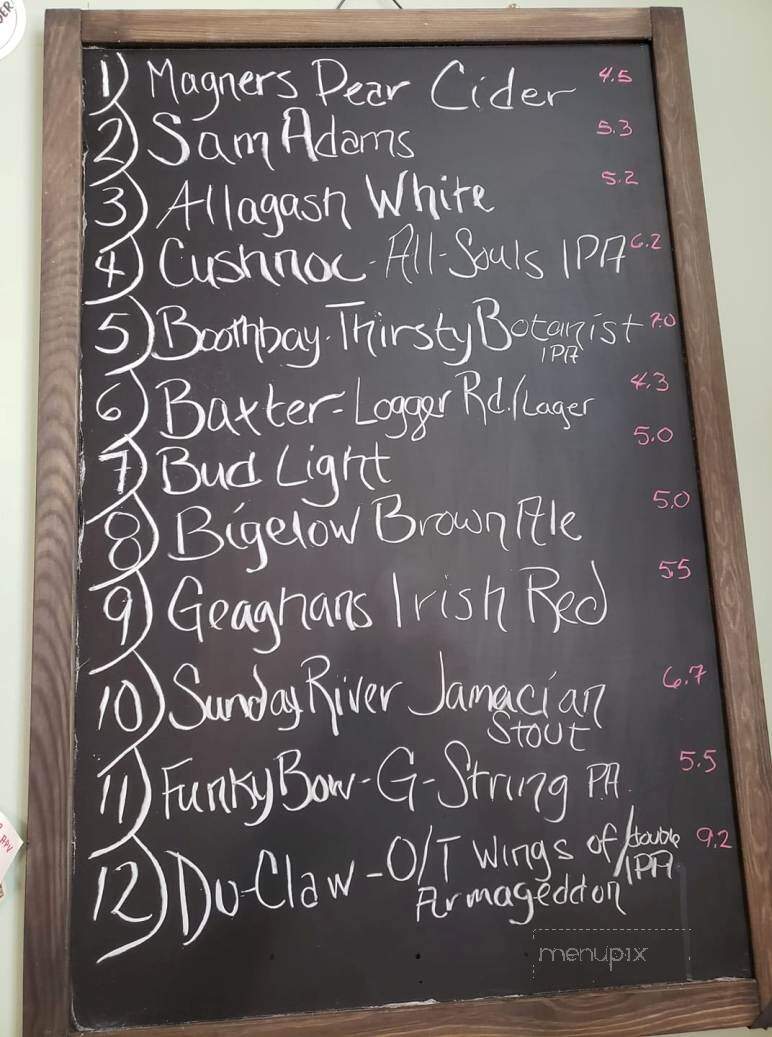 1) Magners Pear Cider 4.5
2) Sam Adams 5.3
3) Allagash White 5.2
4) Cushnoc - All-Souls IPA 6.2
5) Boothbay-Thirsty Botanist 7.0
IPA
6) Baxter-Logger Rd./Lager 4.3
7) Bud Light 5.0
8) Bigelow Brown Ale 5.0
9) Geaghans Irish Red 55
10) Sunday River Jamacian 6.7
Stout
11) Funky Bow-G-String PA 5.5
12) Du-Claw-O/T Wings of/double 9.2
Armageddon IPA
menupix
APV